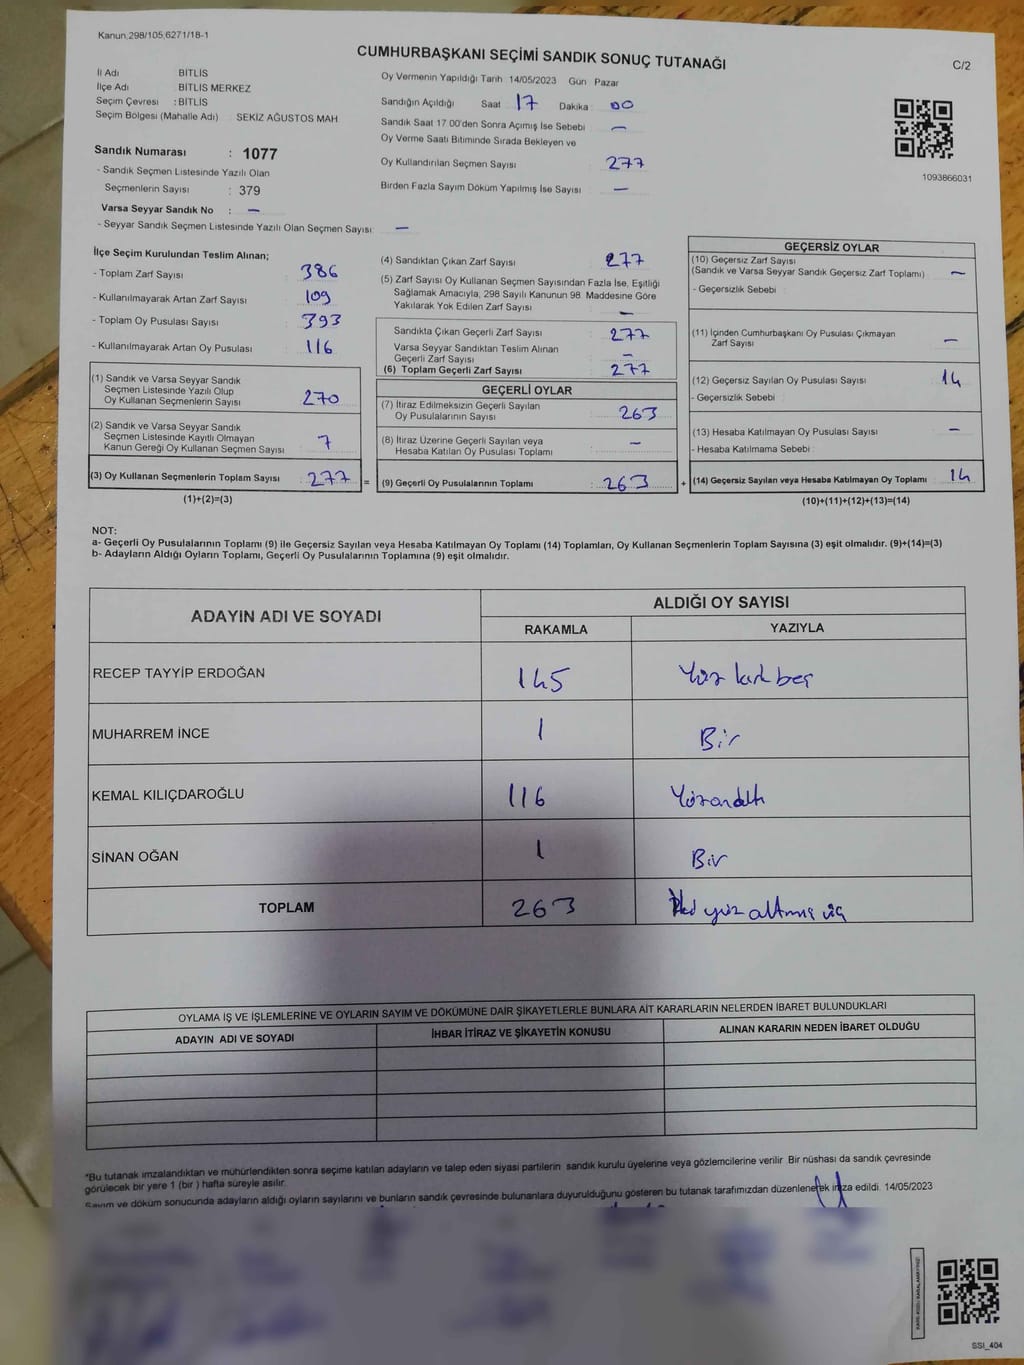 Kanun,298/105,6271/18-1
CUMHURBAŞKANI SEÇİMİ SANDIK SONUÇ TUTANAĞI
C/2
İl Adı BİTLİS
İlçe Adı BİTLİS MERKEZ
Seçim Çevresi : BİTLİS
Seçim Bölgesi (Mahalle Adı) SEKİZ AĞUSTOS MAH
Sandık Numarası : 1077
- Sandık Seçmen Listesinde Yazılı Olan
Seçmenlerin Sayısı : 379
Varsa Seyyar Sandık No : –
- Seyyar Sandık Seçmen Listesinde Yazılı Olan Seçmen Sayısı: –
Oy Vermenin Yapıldığı Tarih 14/05/2023 Gün Pazar
Sandığın Açıldığı Saat 17 Dakika : 00
Sandık Saat 17.00'den Sonra Açımış İse Sebebi –
Oy Verme Saati Bitiminde Sırada Bekleyen ve
Oy Kullandırılan Seçmen Sayısı 277
Birden Fazla Sayım Döküm Yapılmış İse Sayısı –
1093866031
İlçe Seçim Kurulundan Teslim Alınan;
- Toplam Zarf Sayısı 386
- Kullanılmayarak Artan Zarf Sayısı 109
- Toplam Oy Pusulası Sayısı 393
- Kullanılmayarak Artan Oy Pusulası 116
(1) Sandık ve Varsa Seyyar Sandık
Seçmen Listesinde Yazılı Olup
Oy Kullanan Seçmenlerin Sayısı 270
(2) Sandık ve Varsa Seyyar Sandık
Seçmen Listesinde Kayıtlı Olmayan
Kanun Gereği Oy Kullanan Seçmen Sayısı 7
(3) Oy Kullanan Seçmenlerin Toplam Sayısı 277 =
(1)+(2)=(3)
(4) Sandıktan Çıkan Zarf Sayısı 277
(5) Zarf Sayısı Oy Kullanan Seçmen Sayısından Fazla İse, Eşitliği
Sağlamak Amacıyla, 298 Sayılı Kanunun 98. Maddesine Göre
Yakılarak Yok Edilen Zarf Sayısı –
Sandıkta Çıkan Geçerli Zarf Sayısı 277
Varsa Seyyar Sandıktan Teslim Alınan
Geçerli Zarf Sayısı –
(6) Toplam Geçerli Zarf Sayısı 277
GEÇERLİ OYLAR
(7) İtiraz Edilmeksizin Geçerli Sayılan
Oy Pusulalarının Sayısı 263
(8) İtiraz Üzerine Geçerli Sayılan veya
Hesaba Katılan Oy Pusulası Toplamı –
(9) Geçerli Oy Pusulalarının Toplamı : 263 +
GEÇERSİZ OYLAR
(10) Geçersiz Zarf Sayısı
(Sandık ve Varsa Seyyar Sandık Geçersiz Zarf Toplamı) –
- Geçersizlik Sebebi
(11) İçinden Cumhurbaşkanı Oy Pusulası Çıkmayan
Zarf Sayısı –
(12) Geçersiz Sayılan Oy Pusulası Sayısı 14
- Geçersizlik Sebebi
(13) Hesaba Katılmayan Oy Pusulası Sayısı –
- Hesaba Katılmama Sebebi
(14) Geçersiz Sayılan veya Hesaba Katılmayan Oy Toplamı 14
(10)+(11)+(12)+(13)=(14)
NOT:
a- Geçerli Oy Pusulalarının Toplamı (9) ile Geçersiz Sayılan veya Hesaba Katılmayan Oy Toplamı (14) Toplamları, Oy Kullanan Seçmenlerin Toplam Sayısına (3) eşit olmalıdır. (9)+(14)=(3)
b- Adayların Aldığı Oyların Toplamı, Geçerli Oy Pusulalarının Toplamına (9) eşit olmalıdır.
ADAYIN ADI VE SOYADI
ALDIĞI OY SAYISI
RAKAMLA YAZIYLA
RECEP TAYYİP ERDOĞAN 145 Yüz kırk beş
MUHARREM İNCE 1 Bir
KEMAL KILIÇDAROĞLU 116 Yüzonaltı
SİNAN OĞAN 1 Bir
TOPLAM 263 İki yüz altmış üç
OYLAMA İŞ VE İŞLEMLERİNE VE OYLARIN SAYIM VE DÖKÜMÜNE DAİR ŞİKAYETLERLE BUNLARA AİT KARARLARIN NELERDEN İBARET BULUNDUKLARI
ADAYIN ADI VE SOYADI İHBAR İTİRAZ VE ŞİKAYETİN KONUSU ALINAN KARARIN NEDEN İBARET OLDUĞU
*Bu tutanak imzalandıktan ve mühürlendikten sonra seçime katılan adayların ve talep eden siyasi partilerin sandık kurulu üyelerine veya gözlemcilerine verilir. Bir nüshası da sandık çevresinde
görülecek bir yere 1 (bir ) hafta süreyle asılır.
Sayım ve döküm sonucunda adayların aldığı oyların sayılarını ve bunların sandık çevresinde bulunanlara duyurulduğunu gösteren bu tutanak tarafımızdan düzenlenerek imza edildi. 14/05/2023
SSI_404